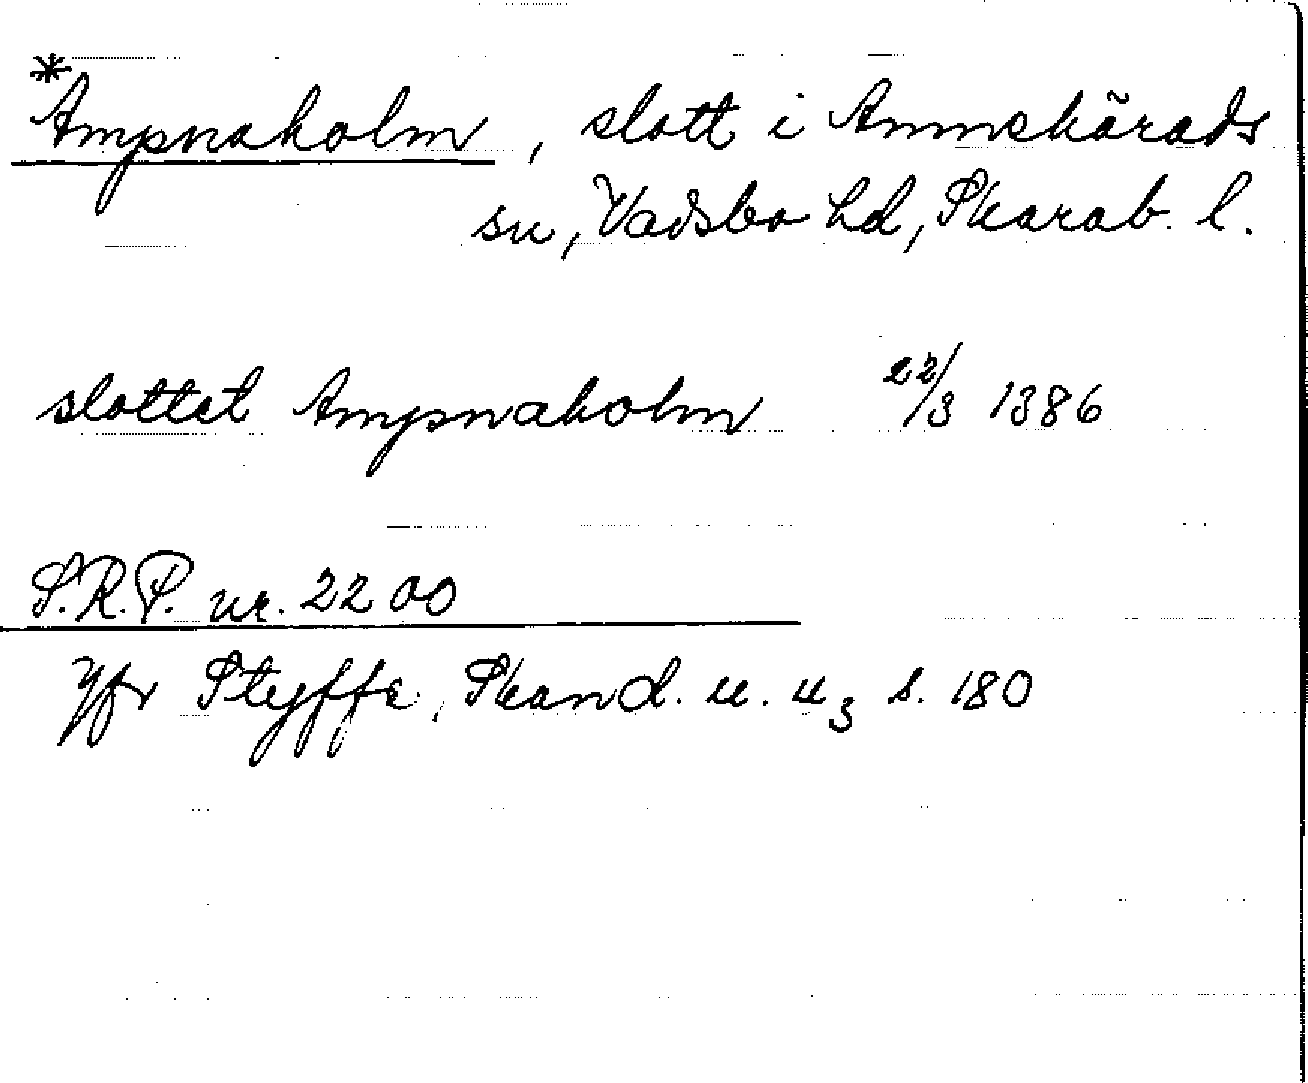 *Ampnaholm, slott i Amnehärads
sn, Vadsbo hd, Skarab. l.
slottet Ampnaholm 22/3 1386
S.R.P. nr. 2200
Jfr Styffe, Skand. u. u3 s. 180